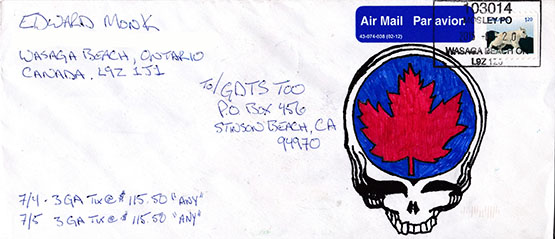 EDWARD MONK
WASAGA BEACH, ONTARIO
CANADA. L9Z 1J1
Air Mail Par avion
43-074-038 (02-12)
103014
PO
WASAGA BEACH ON
L9Z
To/ GDTS TOO
P.O BOX 456
STINSON BEACH, CA
94970
7/4 - 3 GA TIX @ $ 115.50 "ANY"
7/5 3 GA TIX @ $ 115.50 "ANY"